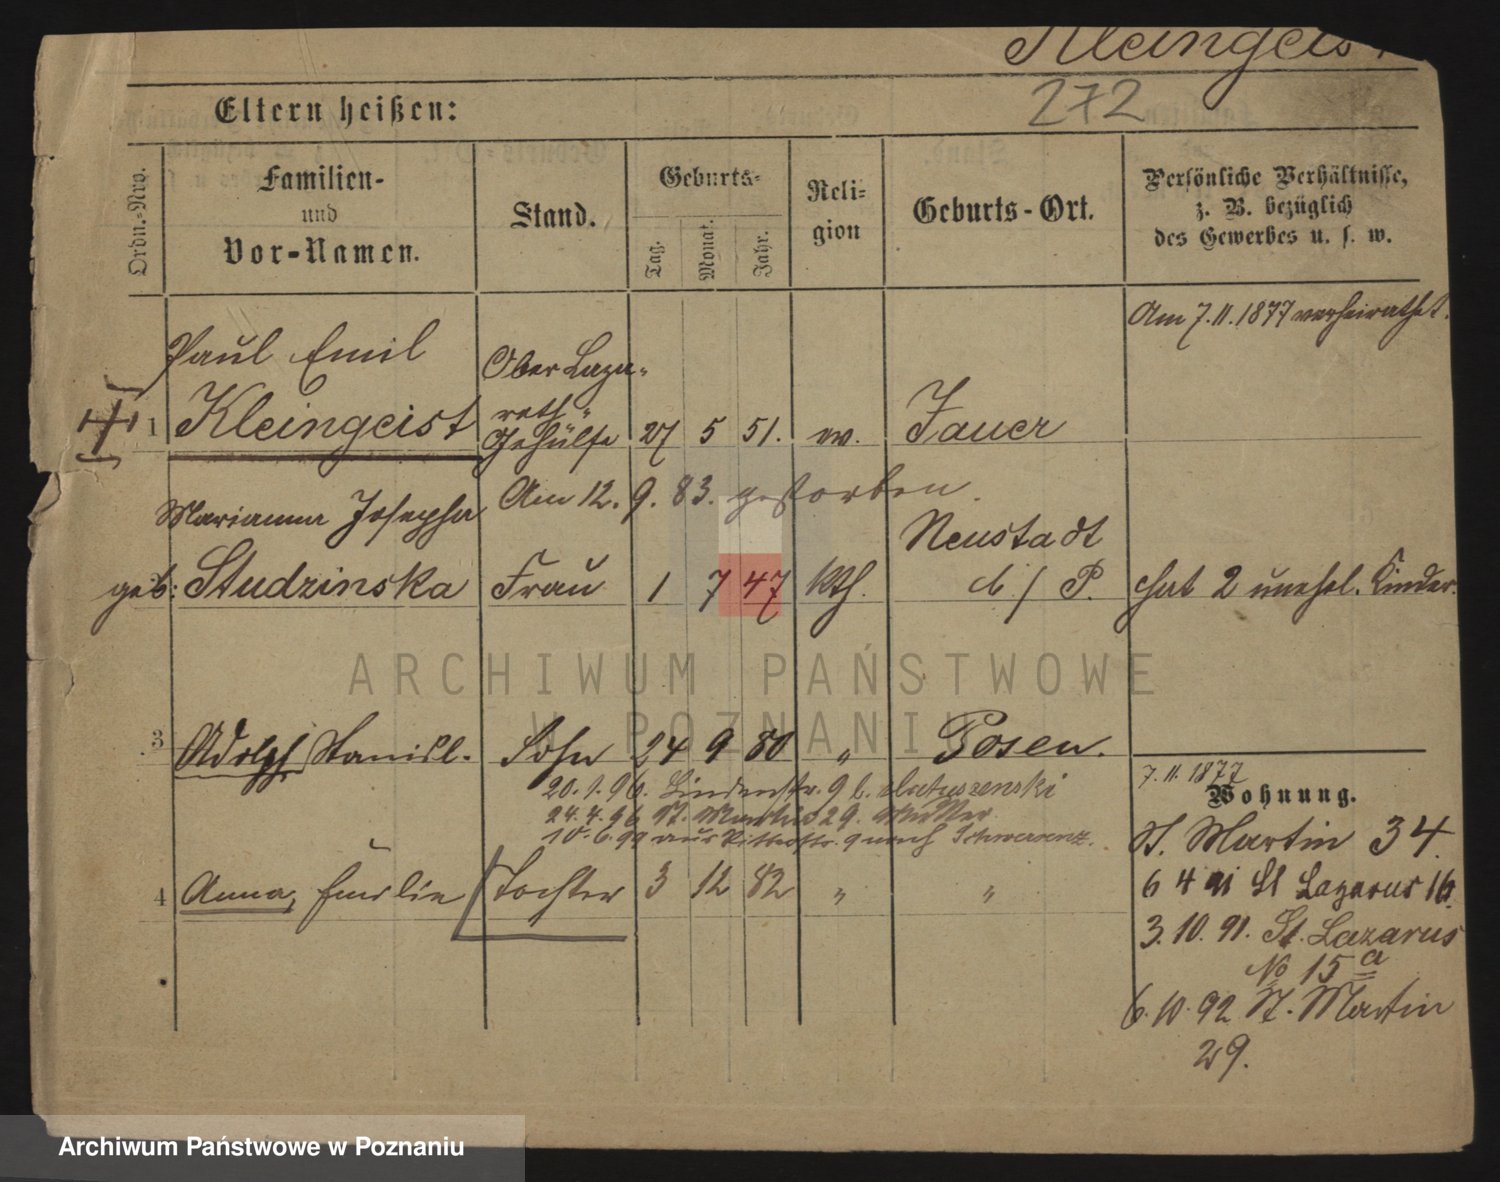 Kleingeist
272
Eltern heißen:
Ordn.-Nro.
Familien-
und
Vor-Namen.
Stand.
Geburts-
Tag.
Monat.
Jahr.
Reli-
gion
Geburts-Ort.
Persönliche Verhältnisse,
z. B. bezüglich
des Gewerbes u. s. w.
Am 7. 11. 1877 verheirathet.
Paul Emil
Ober Laza-
reth-
1 Kleingeist Gehülfe 27 5 51. ev. Jauer
Am 12. 9. 83. gestorben.
Marianna Josepha
Neustadt
geb: Studzinska Frau 1 7 47 kth. b/P. hat 2 unehel. Kinder.
ARCHIWUM PAŃSTWOWE
W POZNANIU
3 Adolph Stanisl. Sohn 24 9 80 " Posen.
20. 1. 96. Lindenstr. 9 b.
24. 4. 96 St. Martin 29. Mutter
10. 6. 99 aus Ritterstr. 9 nach Schwersenz.
4 Anna, Emilie Tochter 3 12 82 " "
7. 11. 1877
Wohnung.
St. Martin 34.
6 4 91 St Lazarus 16.
3. 10. 91. St. Lazarus
No 15 a
6. 10. 92 St. Martin
29.
Archiwum Państwowe w Poznaniu